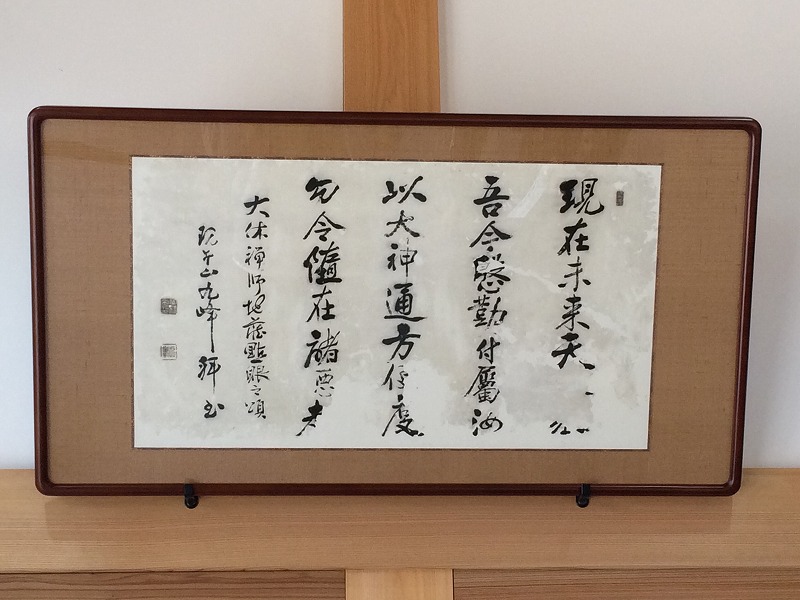 現在未来天人衆
吾今慇懃付屬汝
以大神通方便度
勿令墮在諸悪趣
大休禅師地蔵點眼之頌
山九峰拝書